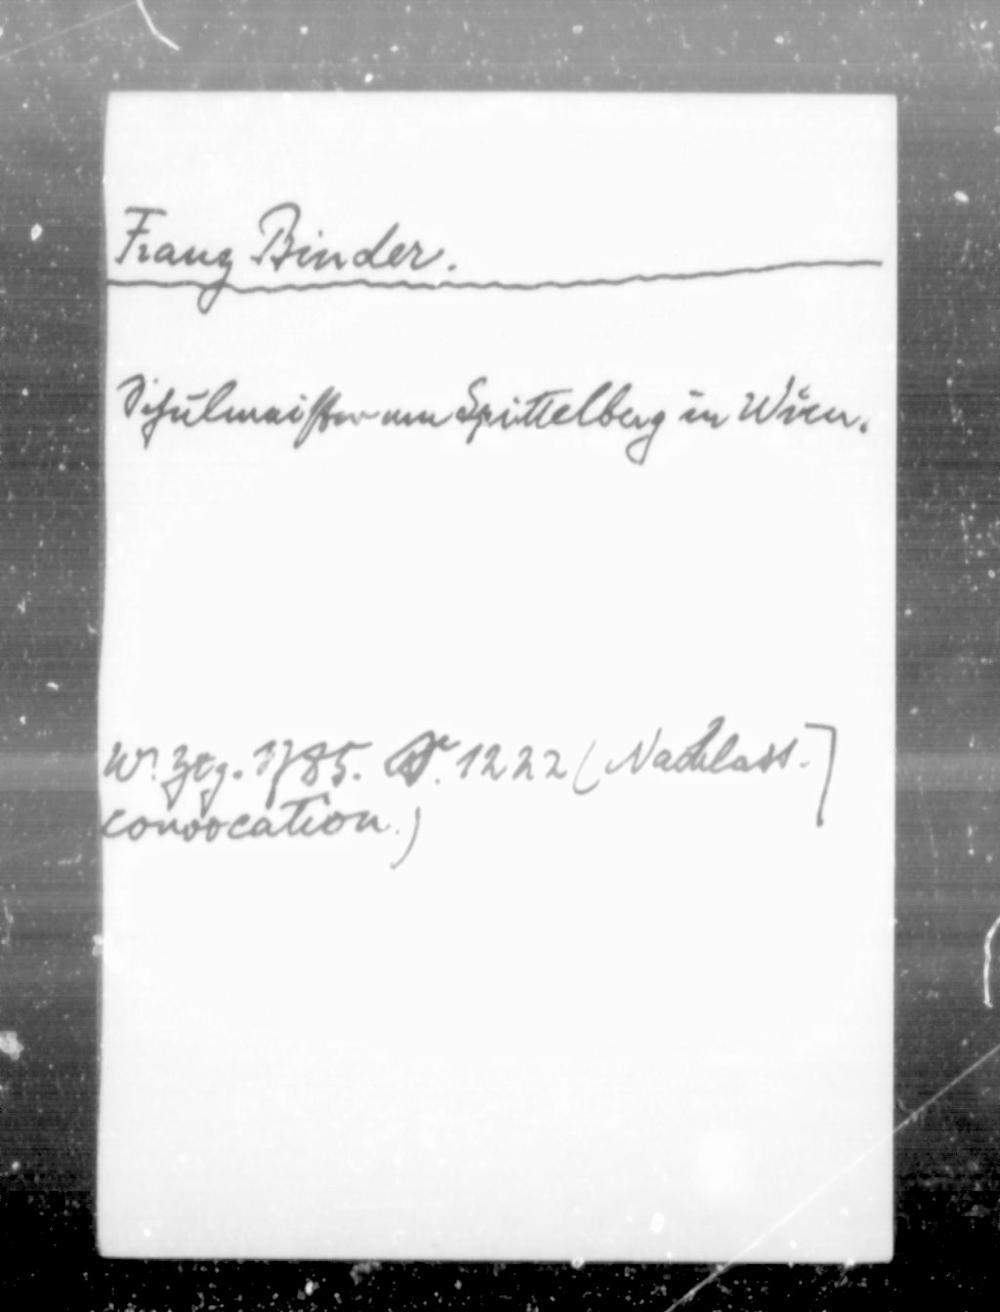 Franz Binder.
Schulmeister am Spittelberg in Wien.
W. Ztg. 1785. S. 1222 (Nachlass-
convocation.)